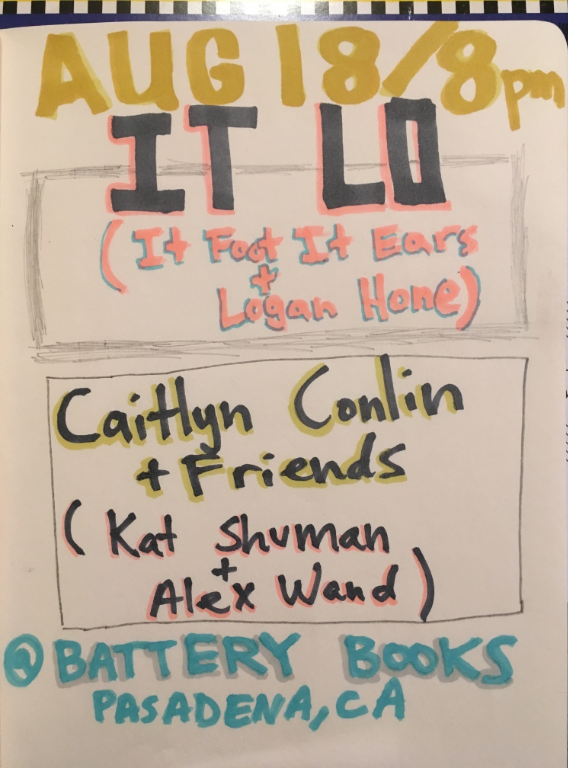 AUG 18/8pm
IT LO
(It Foot It Ears
+
Logan Hone)
Caitlyn Conlin
+ Friends
(Kat Shuman
+
Alex Wand)
@ BATTERY BOOKS
PASADENA, CA